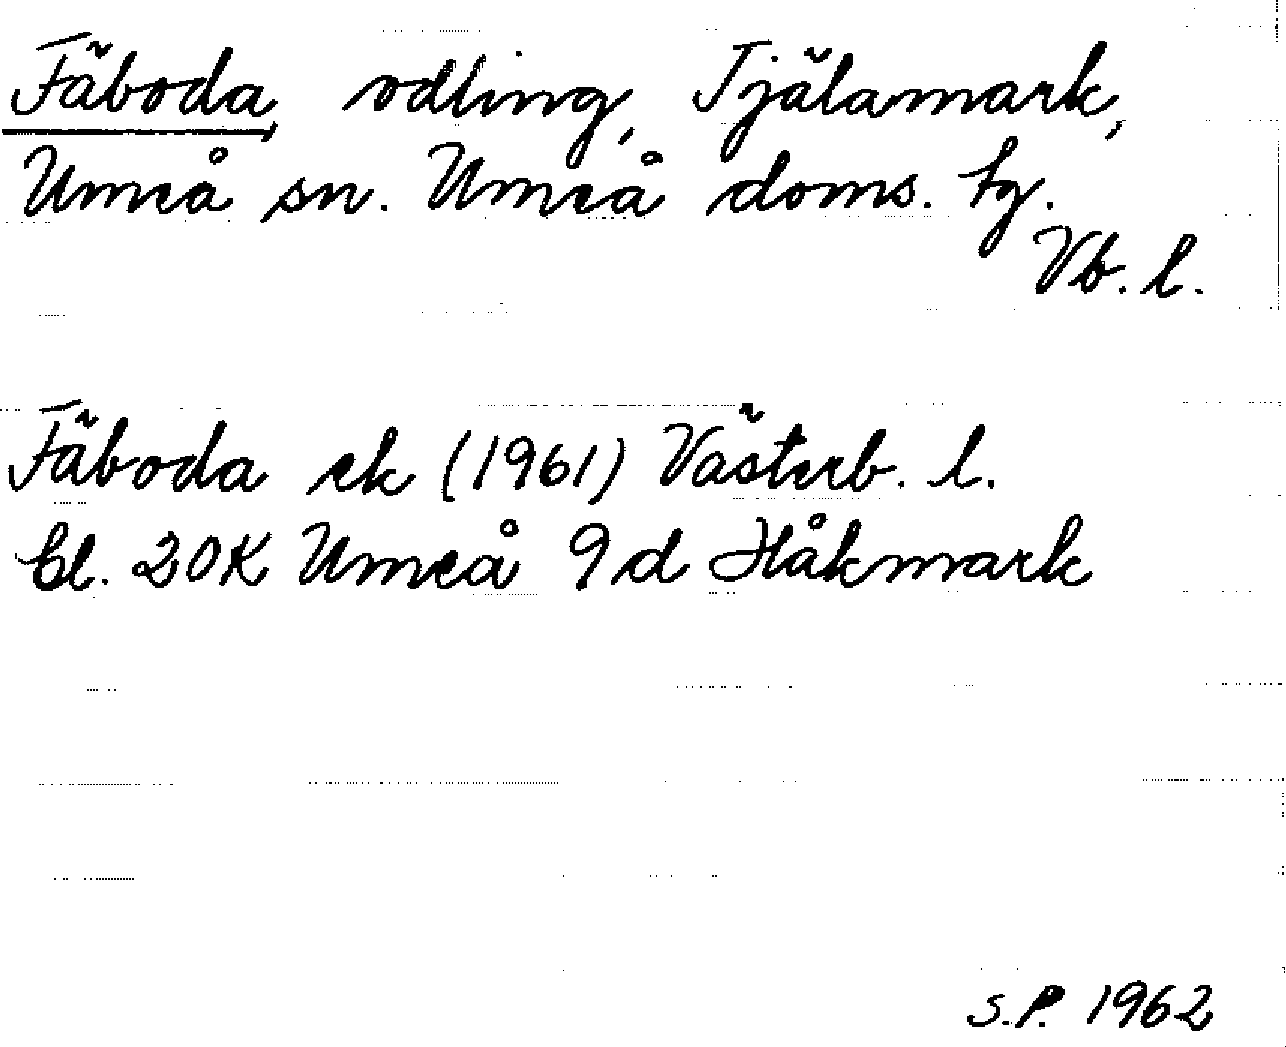 Fäboda, odling, Tjälamark,
Umeå sn. Umeå doms. tg.
Vb. l.
Fäboda ek (1961) Västerb. l.
bl. 20K Umeå 9d Håkmark
S.P. 1962